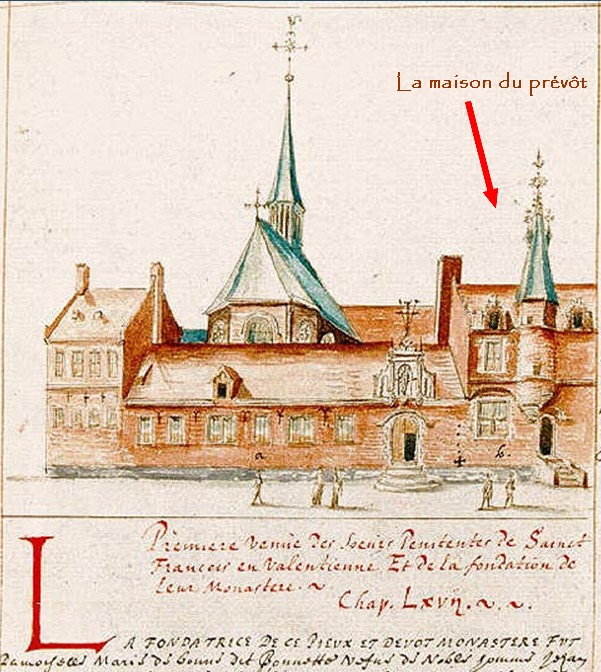 La maison du prévôt
a
b.
Premiere Venüe des Soeurs Penitentes de Sainct
François en Valentienne Et de la fondation de
leur Monastere.
Chap. Lxvij.
LA FONDATRICE DE CE PIEUX ET DEVOT MONASTERE FUT
Damoyselle Marie de dit Bonnette de Nobles